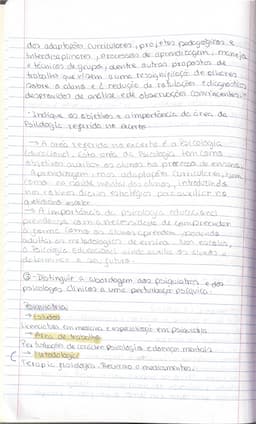 das adaptações curriculares, projetos pedagógicos e
interdisciplinares, processos de aprendizagem, manejo
e técnicas de grupo, dentre outras propostas de
trabalho que visem a uma ressignificação de olhares
sobre o aluno e a redução de rotulações e diagnósticos
desprovidos de análise e de observações
Indique os objetivos e a importância da área da
Psicologia referida no excerto
→ A área referida no excerto é a Psicologia
Educacional, esta área da Psicologia tem como
objetivos auxiliar os alunos no processo de ensino,
Aprendizagem, nas adaptações curriculares, bem
como na saúde mental dos alunos,
um e estratégico para auxiliar no
→ A importância da psicologia educacional
com a necessidade de compreender
a forma como os alunos aprendem, podendo
as metodologias de ensino. Nas escolas,
a Psicologia Educacional ainda auxilia os alunos a
o seu futuro.
- Distinguir a abordagem dos psiquiatras e dos
psicólogos clínicos a uma perturbação psíquica.
Psiquiatria
→ Estudos
Licenciatura em medicina e especialização em psiquiatria
→ Área de trabalho
Perturbações de caráter psicológico e doenças mentais
→ Metodologia
Terapia Recurso a medicamentos.